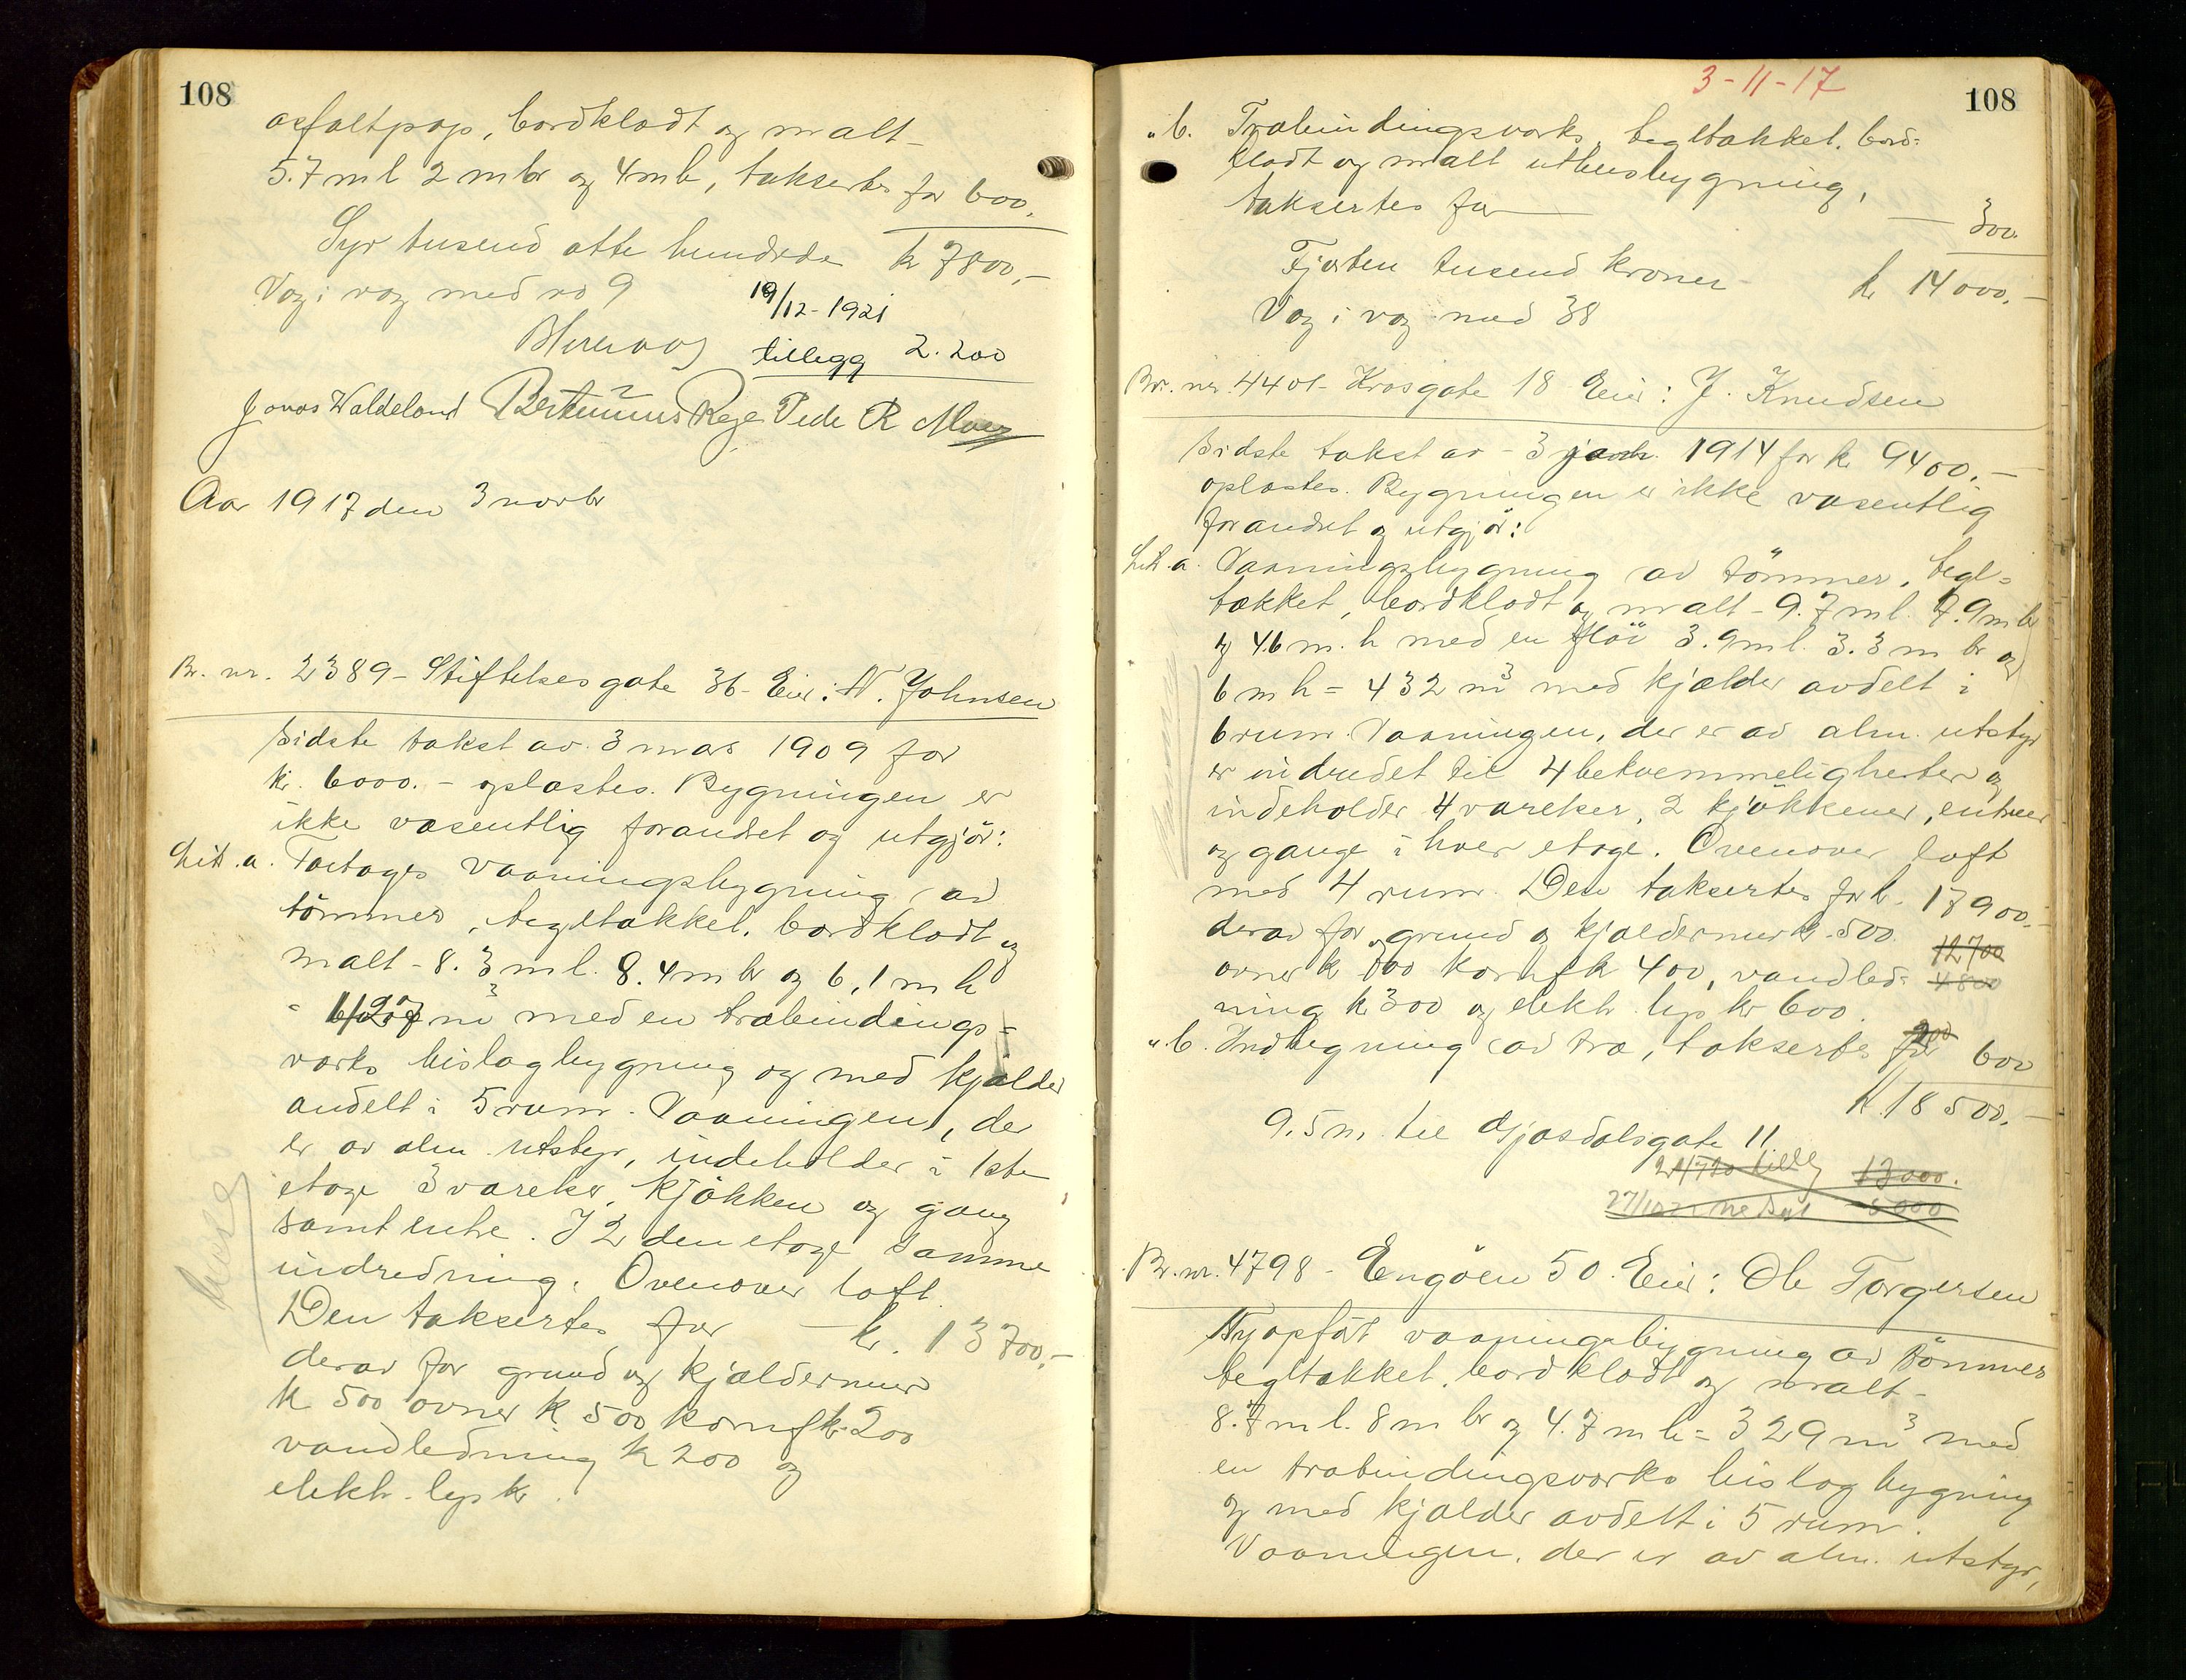 108
asfaltpap, bordklædt og malt -
5.7 m l 2 m br og 4 m h, taksertes for 600.
Syv tusend otte hundrede kr 7800.-
Væg i væg med no 9
19/12-1921
tillegg 2.200
Jonas Waldeland Bertinius Rege Peder R
Aar 1917 den 3 novbr
Br. nr. 2389 - Stiftelsesgate 36 - Eier: N. Johnsen
Sidste takst av 3 mars 1909 for
kr. 6000.- oplæstes. Bygningen er
ikke væsentlig forandret og utgjör:
Lit. a. Toetages vaaningsbygning av
tömmer, tegltækket, bordklædt og
malt - 8.3 m l. 8.4 m br og 6.1 m h
m³ med en træbindings=
verks bislagbygning og med kjælder
avdelt i 5 rum. Vaaningen, der
er av alm. utstyr, indeholder i 1ste
etage 3 værelser, kjökken og gang
samt entre. I 2den etage samme
indredning. Ovenover loft.
Den taksertes for - kr. 13700.-
derav for grund og kjældermur
kr 500 ovner kr 500 komf kr 200
vandledning kr 200 og
elektr. lys kr.
3-11-17
108
" b. Træbindingsverks, tegltækket, bord=
klædt og malt uthusbygning,
taksertes for — 300.
Fjorten tusend kroner kr 14000.-
Væg i væg med 38
Br. nr. 4401 - Krosgate 18 Eier: J. Knudsen
Sidste takst av - 3 janr. 1914 for kr 9400.-
oplæstes. Bygningen er ikke væsentlig
forandret og utgjör:
Lit. a. Vaaningsbygning av tömmer, tegl=
tækket, bordklædt og malt - 9.7 m l. 7.9 m br
og 4.6 m. h med en flöi 3.9 m l. 3.3 m br og
6 m h = 432 m³ med kjælder avdelt i
6 rum. Vaaningen, der er av alm. utstyr
er indredet til 4 bekvemmeligheter og
indeholder 4 værelser, 2 kjökkener, entreer
og gange i hver etage. Ovenover loft
med 4 rum. Den taksertes for kr. 17900.-
derav for grund og kjældermur kr. 500
12700
ovner kr 800 komf kr 400, vandled=
4800
ning kr 300 og elektr. lys kr 600.
" b. Indbygning av træ, taksertes for 600
kr. 18500.-
9.5 m. til Gjosdalsgate 11
13000.
27/10 22 nedsat 6000
Br. nr. 4798 - Engöen 50. Eier: Ole Torgersen
Nyopfört vaaningsbygning av tömmer
tegltækket, bordklædt og malt -
8.7 m l. 8 m br og 4.7 m h = 329 m³ med
en træbindingsverks bislagbygning
og med kjælder avdelt i 5 rum.
Vaaningen, der er av alm. utstyr,